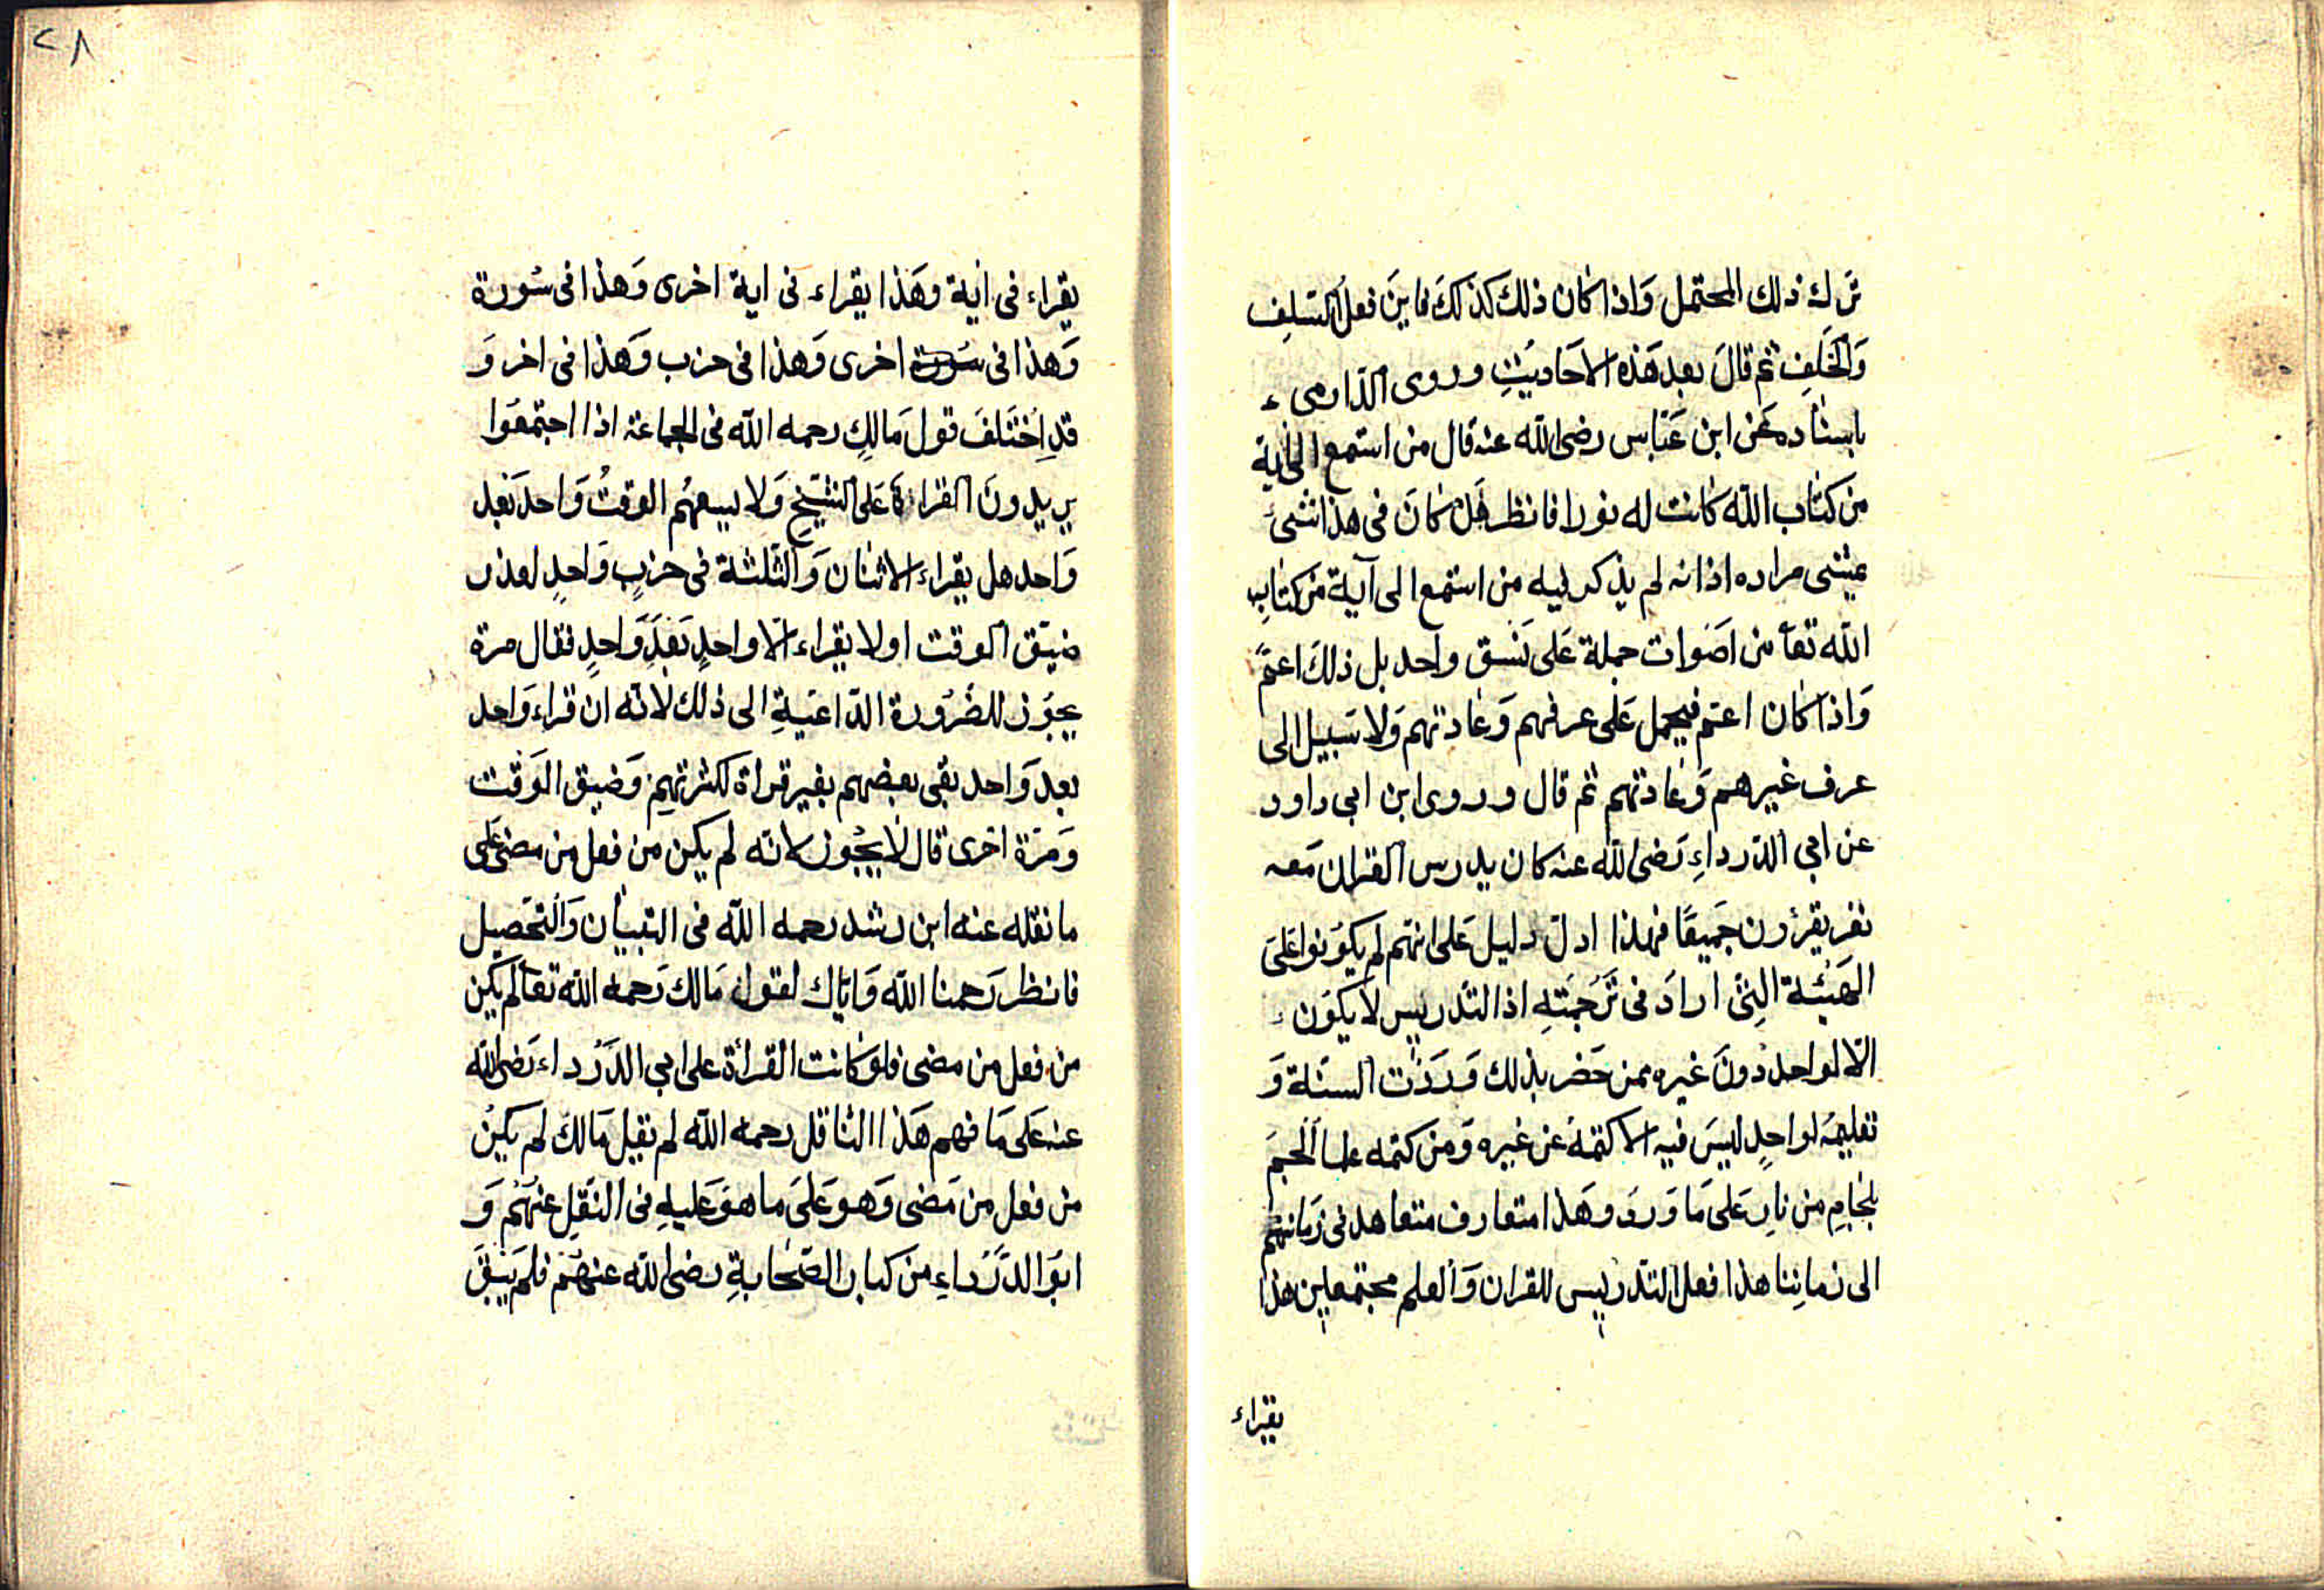 ترك ذلك المحتمل وَاذا كان ذلك كذلكَ فاينَ فعل السَلِف
وَالخَلَفِ ثم قالَ بعد هَذه الاحَاديثِ وروى الدّارمى
باسنٰاده عَن ابن عَبّاس رضى الله عنه قال من استمع الى اٰية
من كتاب الله كانت له نورا فانظر هَل كانَ فى هذا شىء
يمشى مراده اذ انه لم يذكر ليه من استمع الى آية من كتابِ
الله تعاَ من اصَوات جملة عَلى نَسَق واحد بل ذلكَ اعمّ
وَاذا كان اعتم فيحمل عَلى عرفهم وَعادتهم وَلا سَبيل الى
عرف غيرهم وَعادتهم ثم قال وروى ابن ابى داود
عن ابي الدرداءِ رَضى الله عنه كان يدرس القران مَعه
نفر يقرؤن جَميعًا فهذا ادل دليل عَلى انهم لم يكوَنوا عَلىَ
الهَيئة التِى ارادَ فى تَرجَمتهِ اذ التَدريس لا يكوَن
الا لواحد دونَ غيره ممن حَضر بذلك وَردَت السنّة وَ
تعليمهَ لواحدٍ ليسَ فيه الا كتمهَ عن غيره وَمن كتمه علما الجمَ
بلجَامِ من نارٍ عَلى مَا وَردَ وهَذا متعارف متعاهد فى زَمانهم
الى زمانِنا هذا فعل التدريس للقران وَالعلم مجتمعين هٰذا
يقراء
٢٨
يقراء فى اٰية وهَذا يقراء فى اية اخرى وَهذا فى سُورة
وَهذا فى سورة اخرى وَهذا فى حزب وَهَذا فى اخر وَ
قدِ اخْتَلفَ قول مَالكٍ رحمه الله فى الجماعة اذا اجتمعَوا
يريدونَ القراءة عَلى الشيخِ وَلا يسعهُم الوقتُ وَاحد بَعد
وَاحد هل يقراء الاثنان وَالثّلثة فى حزبٍ وَاحدٍ لعذر
ضيّق الوقت او لا يقراء الا واحدٍ بَعدَ وَاحدٍ فقال مرة
يجوَز للضَرُورة الدّاعَيةِ الى ذلك لانّه ان قراء وَاحد
بعد وَاحد بقى بعضهم بغير قراة لكثرتهم وَضيق الوَقت
وَمَرّة اخرى قال لا يجُوز لانّه لم يكن من فعل من مضى عَلى
ما نقله عنه ابن رشد رحمه الله فى التبيٰان وَالتحَصيل
فانظر رَحمنا الله وَاياك لقول مَالك رَحمه الله تعاَ لم يكن
من فعل من مضى فلو كانت القرأة على ابي الدَرداء رَضى الله
عنه عَلى مَا فهم هَذا الناقل رحمه الله لم يقيل مَالك لم يكنْ
من فعل من مَضى وَهوَ عَلىَ ما هوَ عَليهِ فى النَقلِ عنهُم وَ
ابَو الدَّرَداءِ من كبار الصَحابةِ رضى الله عنهُم فلم يَبقَ